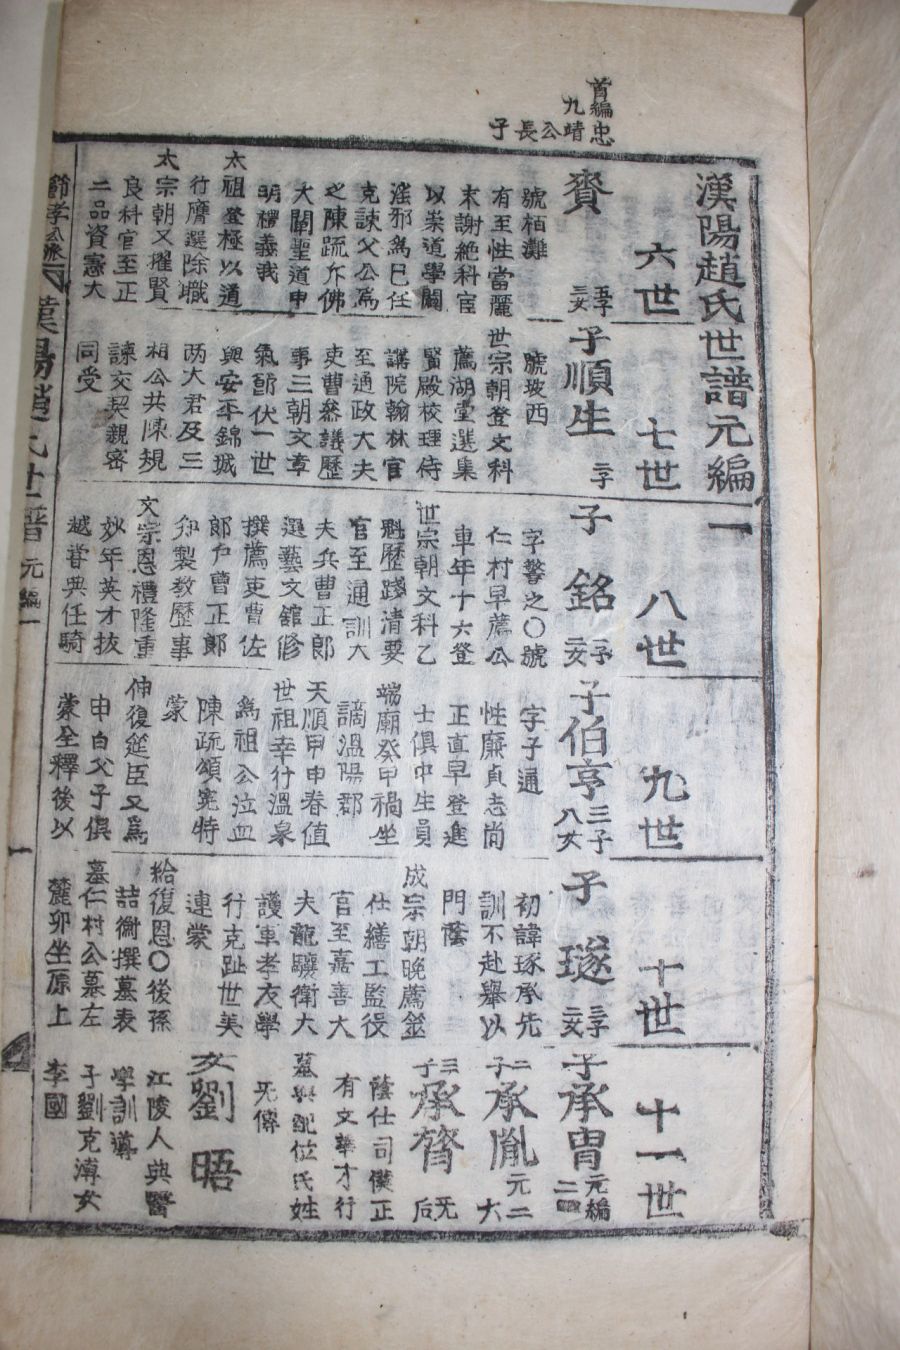 首編忠
九靖公長子
漢陽趙氏世譜元編一
六世
賚
五子
三女
號栢灘
有至性當麗
末謝絶科宦
以崇道學闢
滛邪爲己任
克諫父公爲
之陳疏斥佛
大闡聖道申
明禮義我
太祖登極以道
行膺選除職
太宗朝又擢賢
良科官至正
二品資憲大
七世
子順生
二子
號坡西
世宗朝登文科
薦湖堂選集
賢殿校理侍
講院翰林官
至通政大夫
吏曹叅議歷
事三朝文章
氣節伏一世
與安平錦城
两大君及三
相公共陳規
諫交契親密
同受
八世
子銘
二子
二女
字警之〇號
仁村早薦公
車年十六登
世宗朝文科乙
魁歷踐清要
官至通訓大
夫兵曹正郎
選藝文舘修
撰薦吏曹佐
郎户曹正郎
知製教歷事
文宗恩禮隆重
妙年英才拔
越眥典任騎
九世
子伯亨
三子
八女
字子通
性廉貞志尚
正直早登進
士俱中生員
端廟癸甲禍坐
謫溫陽郡
天順甲申春值
世祖幸行溫泉
爲祖公泣血
陳疏頌寃特
蒙
伸復筵臣又爲
申白父子俱
蒙全釋後以
十世
子璲
三子
二女
初諱琢承先
訓不赴舉以
門蔭
成宗朝晚薦筮
仕繕工監役
官至嘉善大
夫龍驤衛大
護軍孝友學
行克趾世美
連蒙
給復恩〇後孫
喆衡撰墓表
墓仁村公墓左
麓卯坐原上
十一世
子承胄
元編
二
二子承胤
元二
大
三子承膂
无后
蔭仕司僕正
有文華才行
墓與配位氏姓
旡傳
女劉晤
江陵人典醫
學訓導
子劉克溥女
李國
節孝公派
漢陽趙氏世譜
元編一
一